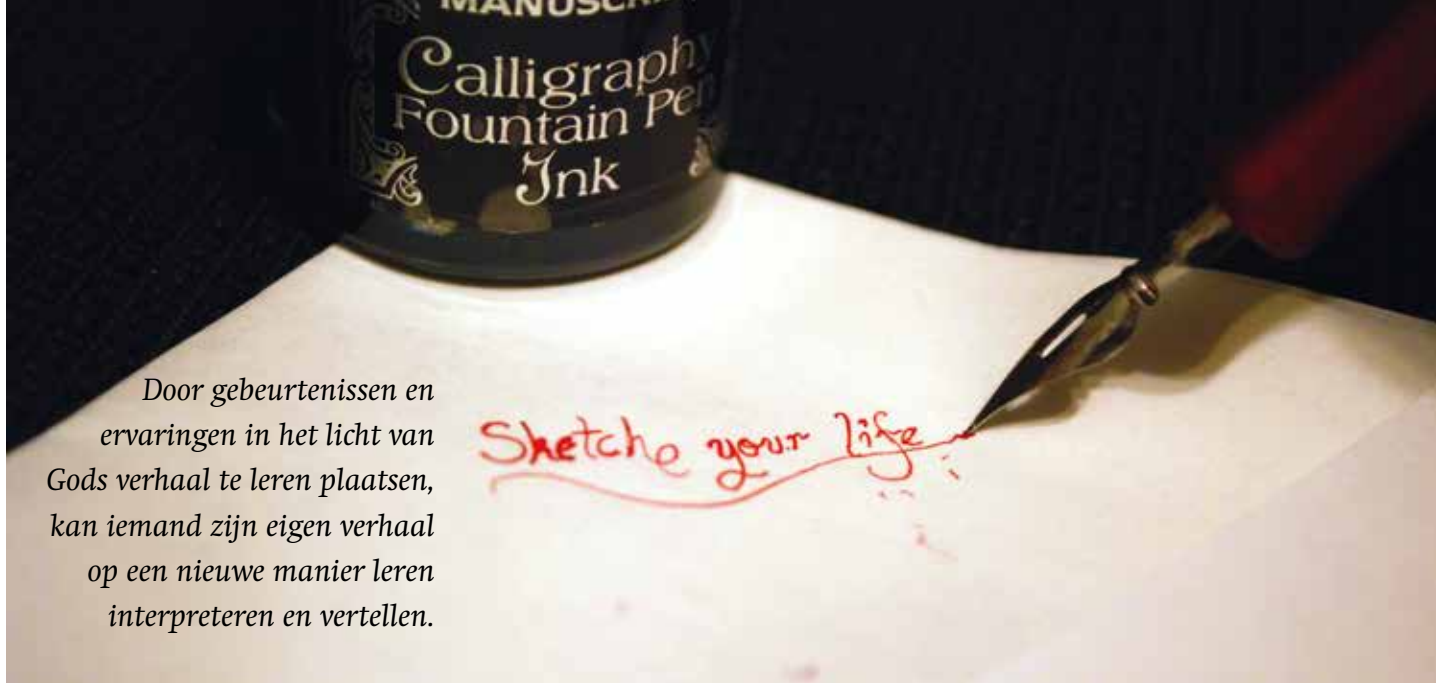 Calligraphy
Fountain Pen
Ink
Door gebeurtenissen en
ervaringen in het licht van
Gods verhaal te leren plaatsen,
kan iemand zijn eigen verhaal
op een nieuwe manier leren
interpreteren en vertellen.
Sketche your life